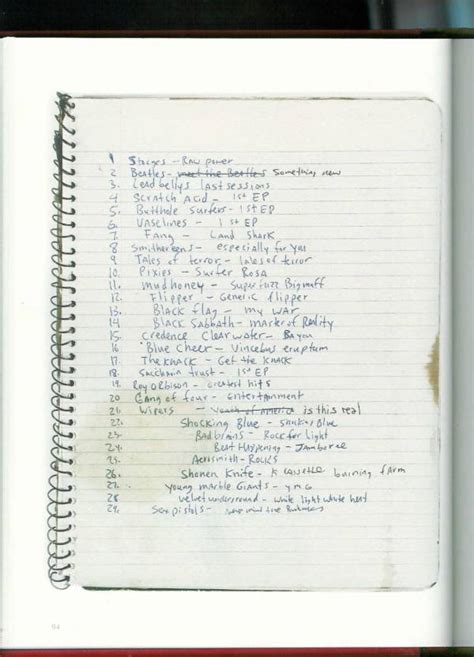 1 Stooges - Raw power
2 Beatles - meet the Beatles Something new
3. Leadbellys last sessions
4 Scratch Acid - 1st EP
5. Butthole surfers - 1st EP
6. Vaselines - 1st EP
7 Fang - Land Shark
8 Smithereens - especially for You
9 Tales of terror - tales of terror
10. Pixies - Surfer Rosa
11. Mudhoney - Superfuzz Bigmuff
12. Flipper - Generic flipper
13. BLACK flag - my WAR
14 BLACK Sabbath - master of Reality
15. Credence Clearwater - Bayou
16 Blue Cheer - Vincebus eruptum
17. The KNACK - Get the KNACK
18. Saccharin trust - 1st EP
19. Roy ORbison - Greatest hits
20 Gang of four - entertainment
21. Wipers - Youth of America is this real
22. Shocking Blue - Shocking Blue
23. Bad brains - Rock for light
24. Beat Happening - Jamboree
25. Aerosmith - ROCKS
26. Shonen Knife - burning farm
27. Young marble Giants - y.m.G
28 velvet underground - white light white heat
29. Sex pistols -
94